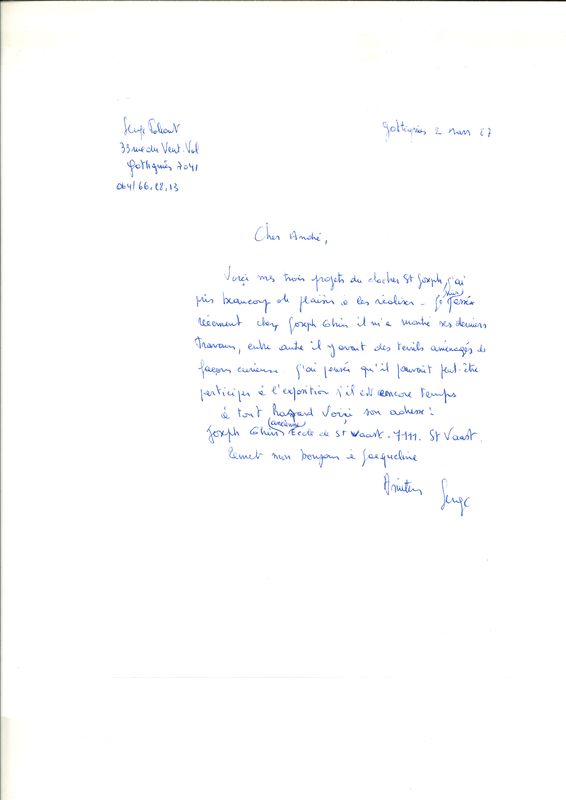 Serge Poliart
33 rue du Vent-Val
Gottignies 7041
064/66.22.13
Gottignies 2 mars 87
Cher André,
Voiçi mes trois projets du clocher St Joseph, j'ai
pris beaucoup de plaisir a les réaliser - Je suis passé
récement chez Joseph Ghin il m'a montré ses derniers
travaux, entre autre il y avait des terrils aménagés de
façon curieuse. j'ai pensé qu'il pouvait peut-être
participer à l'exposition s'il est encore temps
à tout hazard Voiçi son adresse :
Joseph Ghin (ancienne) Ecole de St Vaast. 7111. St Vaast.
Remet mon bonjour à Jacqueline
Amitiés
Serge